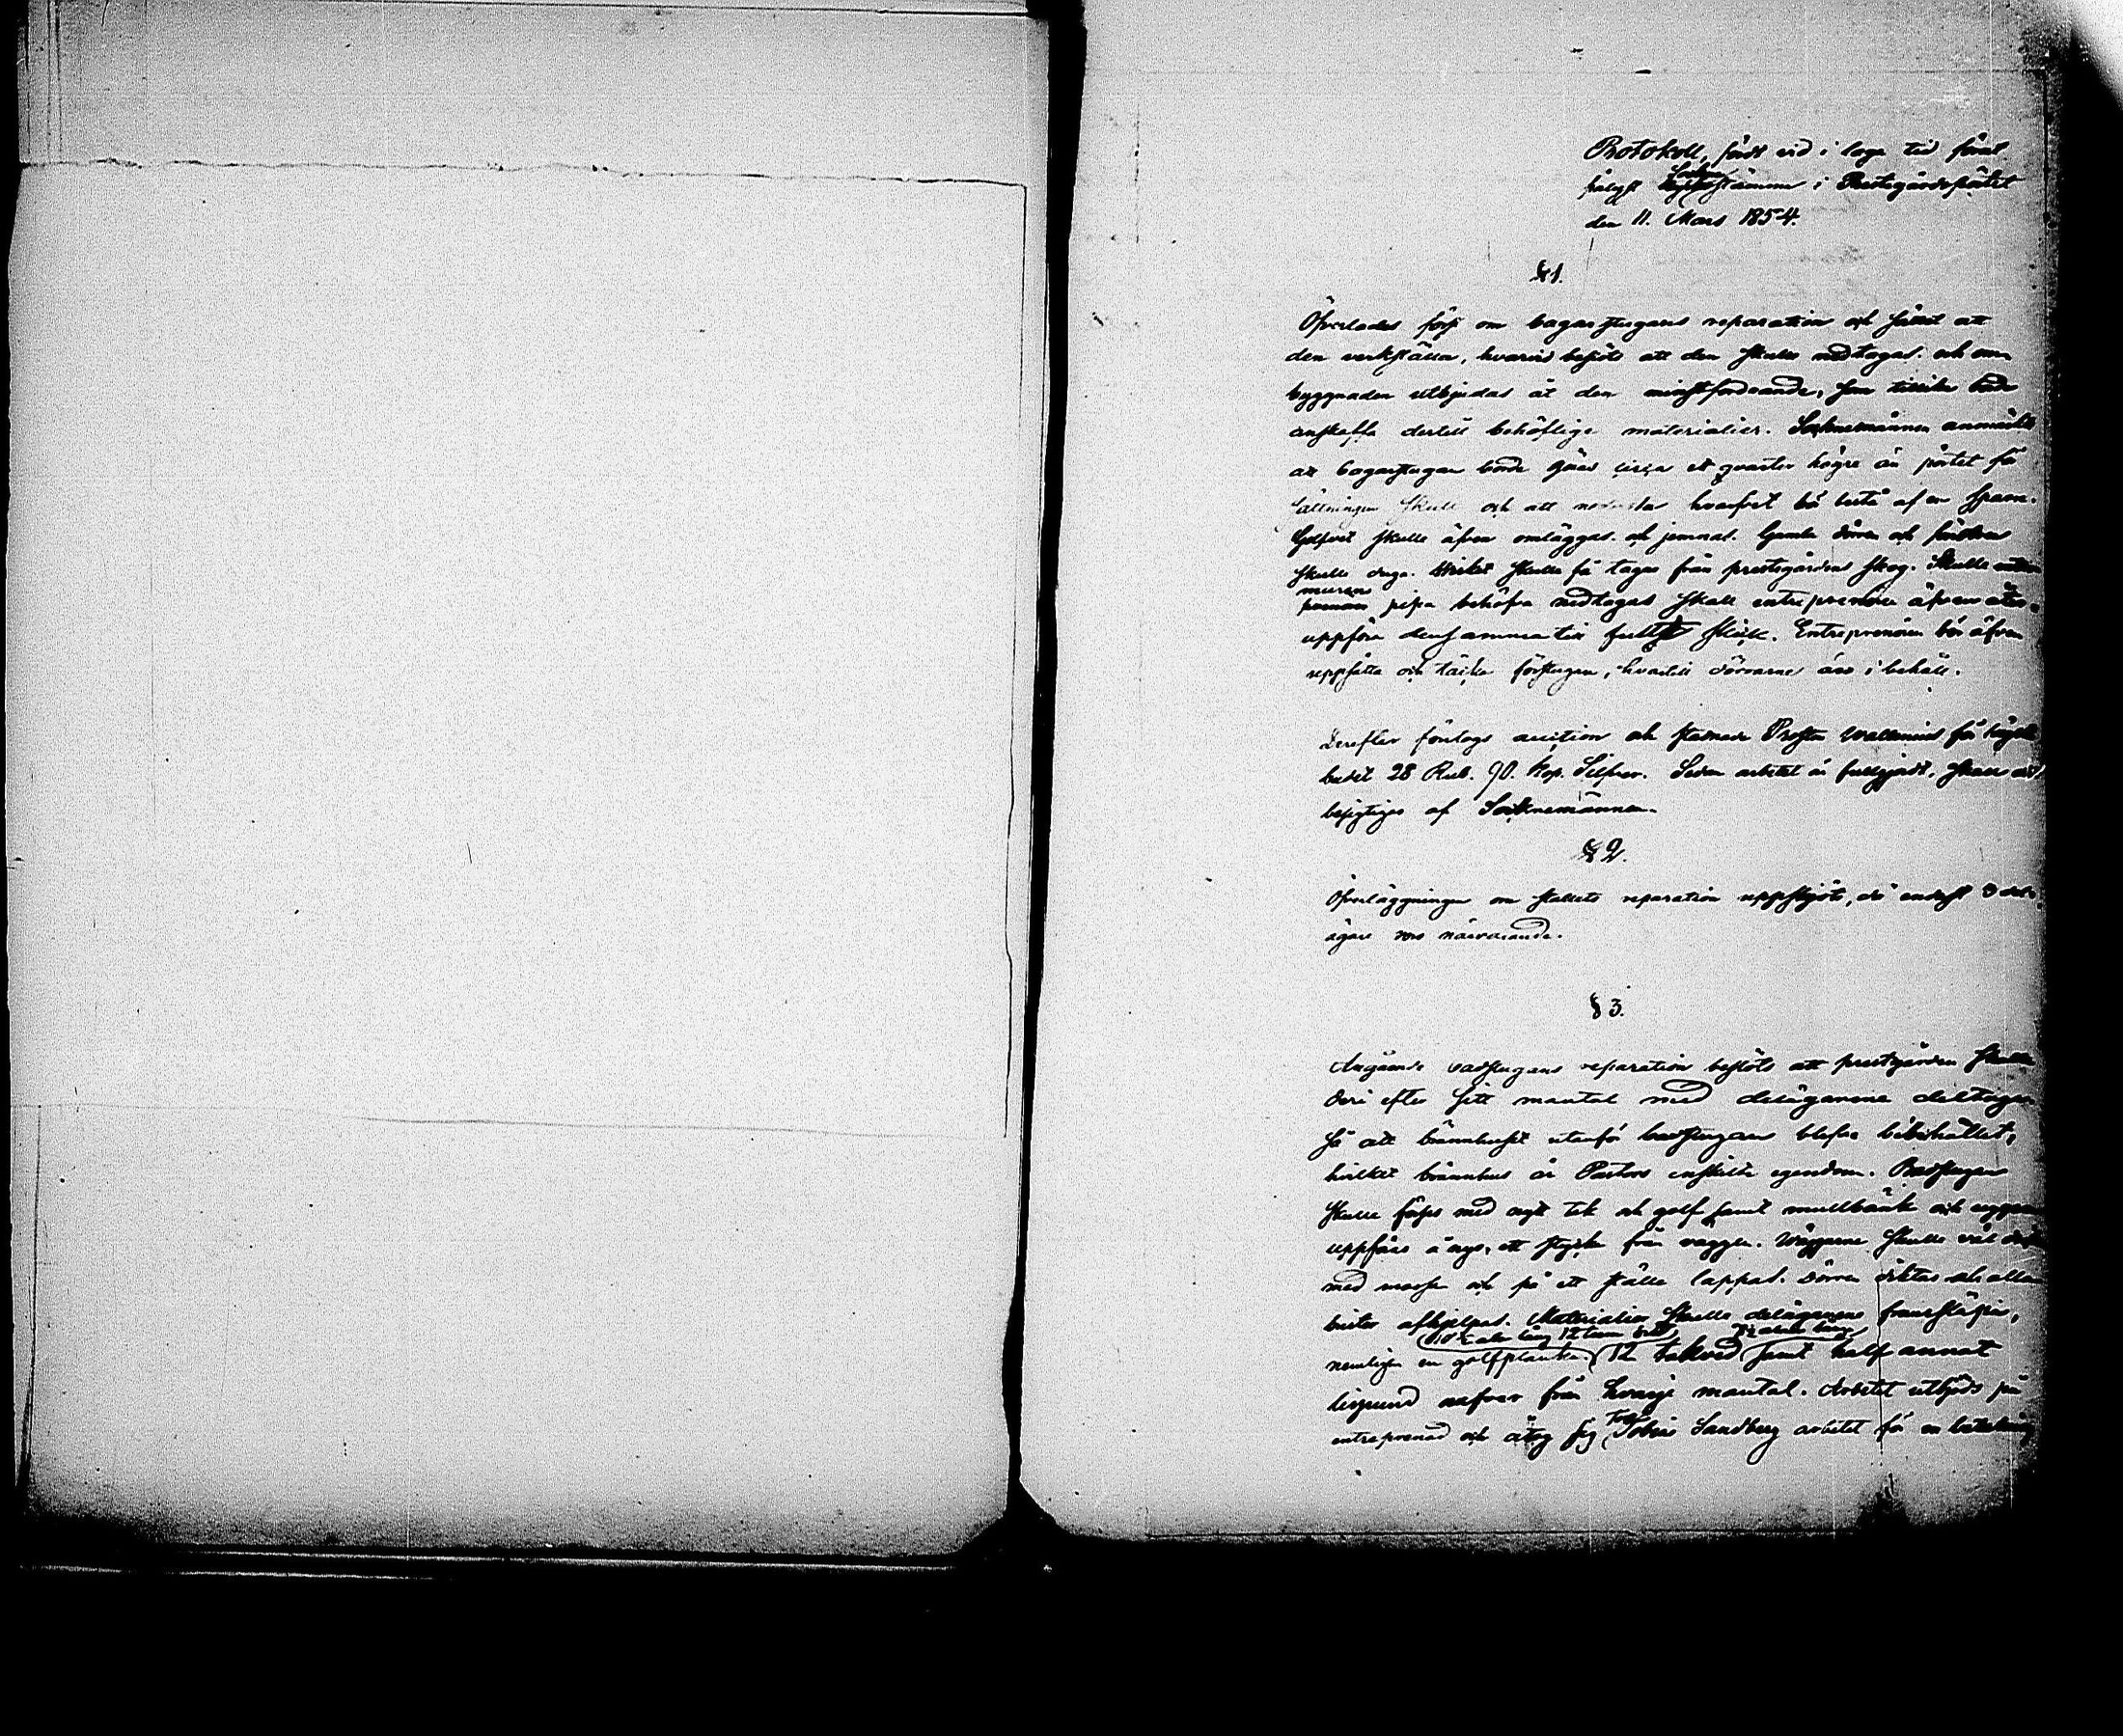 Protokoll, fördt vid i laga tid föraf
hållen Sockne stämma i Prestegårdspörtet
den 11. Mars 1854.
§ 1.
Öfverlades först om bagarstugans reparation och sättet att
den verkställa, hvarvid beslöts att den skulle nedtagas och om
byggnaden utbjudas åt den minstfordrande, som tillika borde
anskaffa dertill behöflige materialier. Socknemännen anmärkte
att bagarstugan borde göras circa et qvarter högre än pörtet för
sättningen skull och att nedersta hvarfvet bör bestå af en sparr.
Golfvet skulle äfven omläggas och jemnas. Gamla dörren och fönstren
skulle duga. Virket skulle få tagas från prestegårdens skog. Skulle
murens pipa behöfva nedtagas skall entreprenören äfven åter-
uppföra densamma till fullt skick. Entreprenören bör äfven
uppsätta och täcka förstugan, hvartill dörrarne äro i behåll.
Derefter företogs auction och stannade Prosten Wallenius för
budet 28 Rub. 90. kop. Silfver. Sedan arbetet är fullgjordt, skall det
besigtigas af Socknemännen.
§ 2.
Öfverläggningen om stallets reparation uppsköts, då endast 3 del-
ägare voro närvarande.
§ 3.
Angående badstugans reparation beslöts att prestgården skulle
deri efter sitt mantal med delägarene deltaga
så att brännhuset utanför badstugan blefve bibehållet,
hvilket brännhus är Pastors enskilda egendom. Badstugan
skulle förses med nytt tak och golf samt mullbänk och
uppföras å nyo, ett stycke från väggen. Wäggarne skulle väl
med mossa och på ett ställe lappas. Dörren och alla
brister afhjelpas. Materialier skulle delägarene framsläpa,
nemligen en golfplanka (10 aln lång 12 tum bred) 12 takved (7½ alnar långa) samt half annat
lispund näfver från hvarje mantal. Arbetet utbjöds på
entreprenad och åtog sig Tobias Sandberg arbetet för en betalning